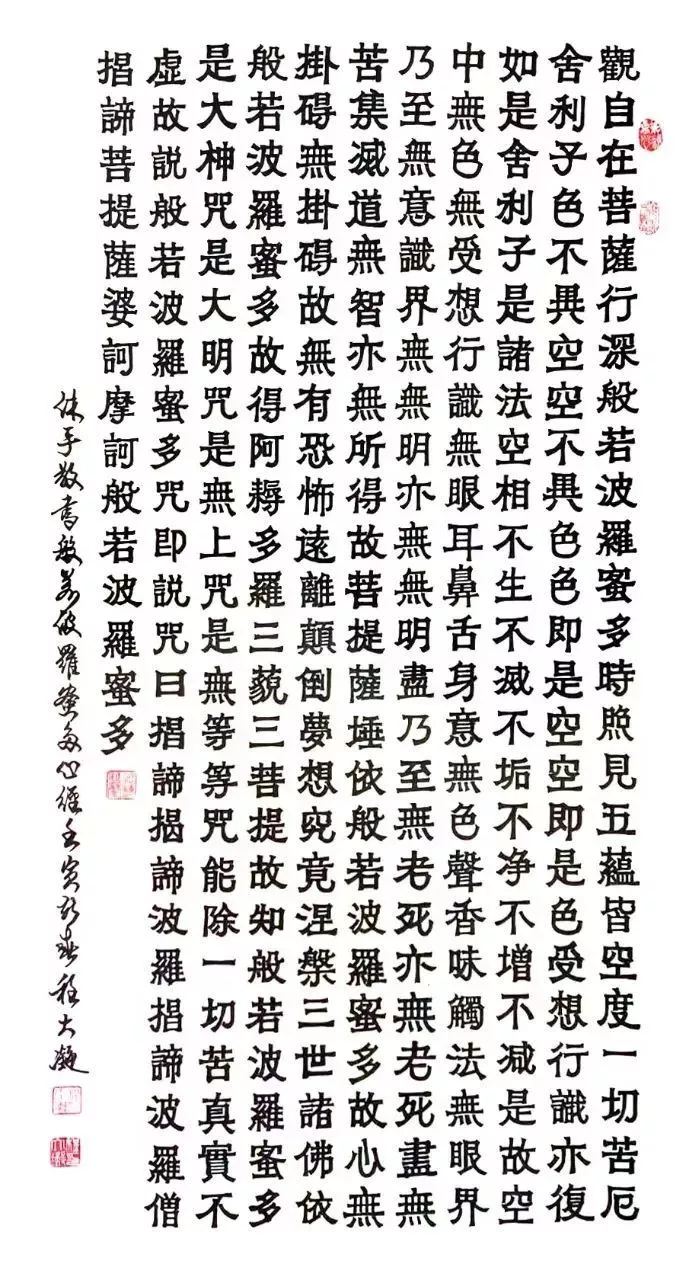 觀自在菩薩行深般若波羅蜜多時照見五蘊皆空度一切苦厄
舍利子色不異空空不異色色即是空空即是色受想行識亦復
如是舍利子是諸法空相不生不滅不垢不净不增不减是故空
中無色無受想行識無眼耳鼻舌身意無色聲香味觸法無眼界
乃至無意識界無無明亦無無明盡乃至無老死亦無老死盡無
苦集滅道無智亦無所得故菩提薩埵依般若波羅蜜多故心無
掛碍無掛碍故無有恐怖遠離顛倒夢想究竟涅槃三世諸佛依
般若波羅蜜多故得阿耨多羅三藐三菩提故知般若波羅蜜多
是大神咒是大明咒是無上咒是無等等咒能除一切苦真實不
虛故説般若波羅蜜多咒即説咒曰揭諦揭諦波羅揭諦波羅僧
揭諦菩提薩婆訶摩訶般若波羅蜜多
沐手敬書般若波羅蜜多心經壬寅春程大凝